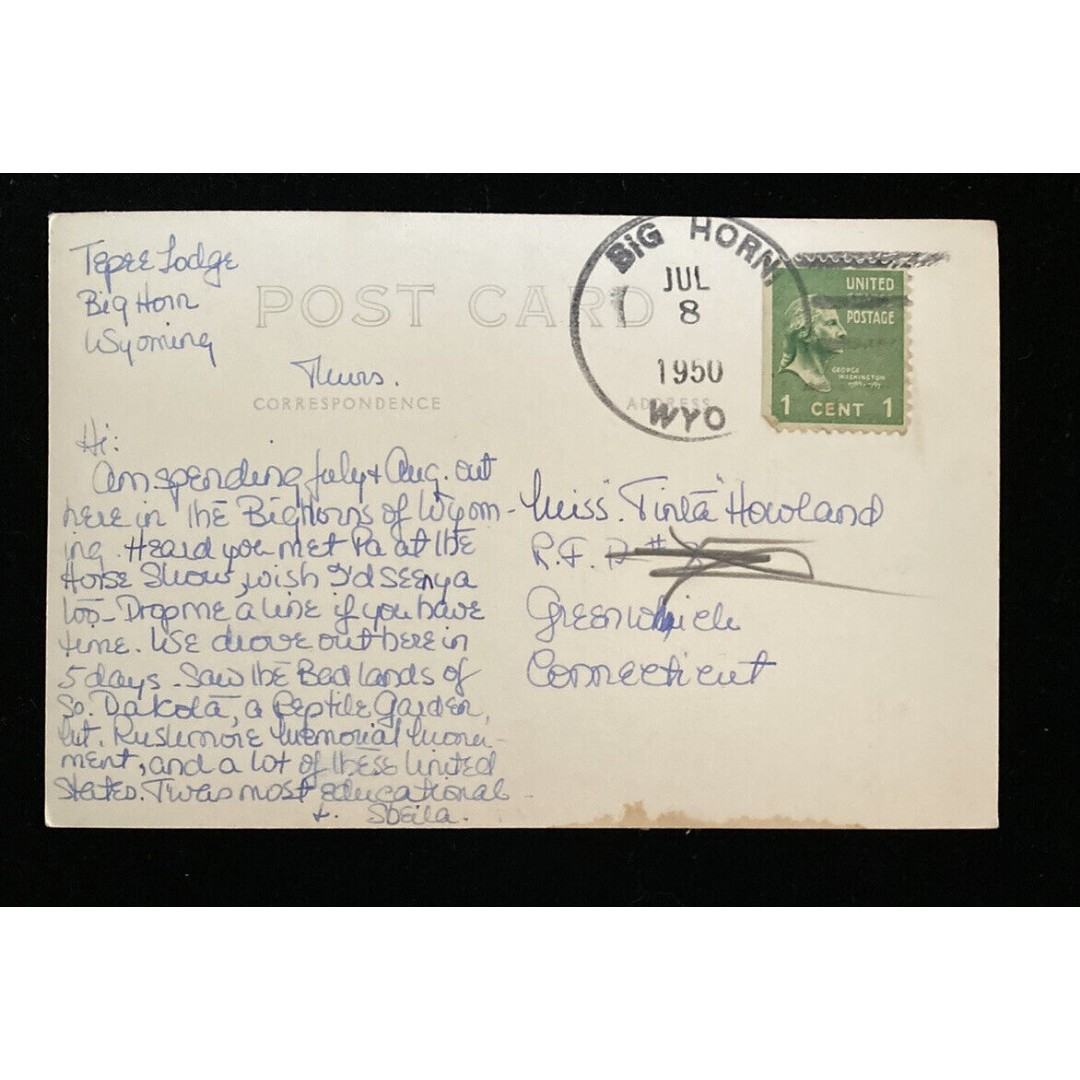 Tepee Lodge
Big Horn
Wyoming
Thurs.
POST CARD
CORRESPONDENCE
ADDRESS
BiG HORN
JUL
8
1950
WYO
UNITED
POSTAGE
GEORGE
WASHINGTON
1 CENT 1
Hi:
Am spending July & Aug. out
here in the Bighorns of Wyom-
ing. Heard you met Pa at the
Horse Show, wish I'd seen ya
too. Drop me a line if you have
time. We drove out here in
5 days. Saw the Bad lands of
So. Dakota, a Reptile Garden,
Mt. Rushmore Memorial Monu-
ment, and a lot of these United
States. Twas most educational
Sheila.
Miss "Howland
R.F.
Greenwich
Connecticut